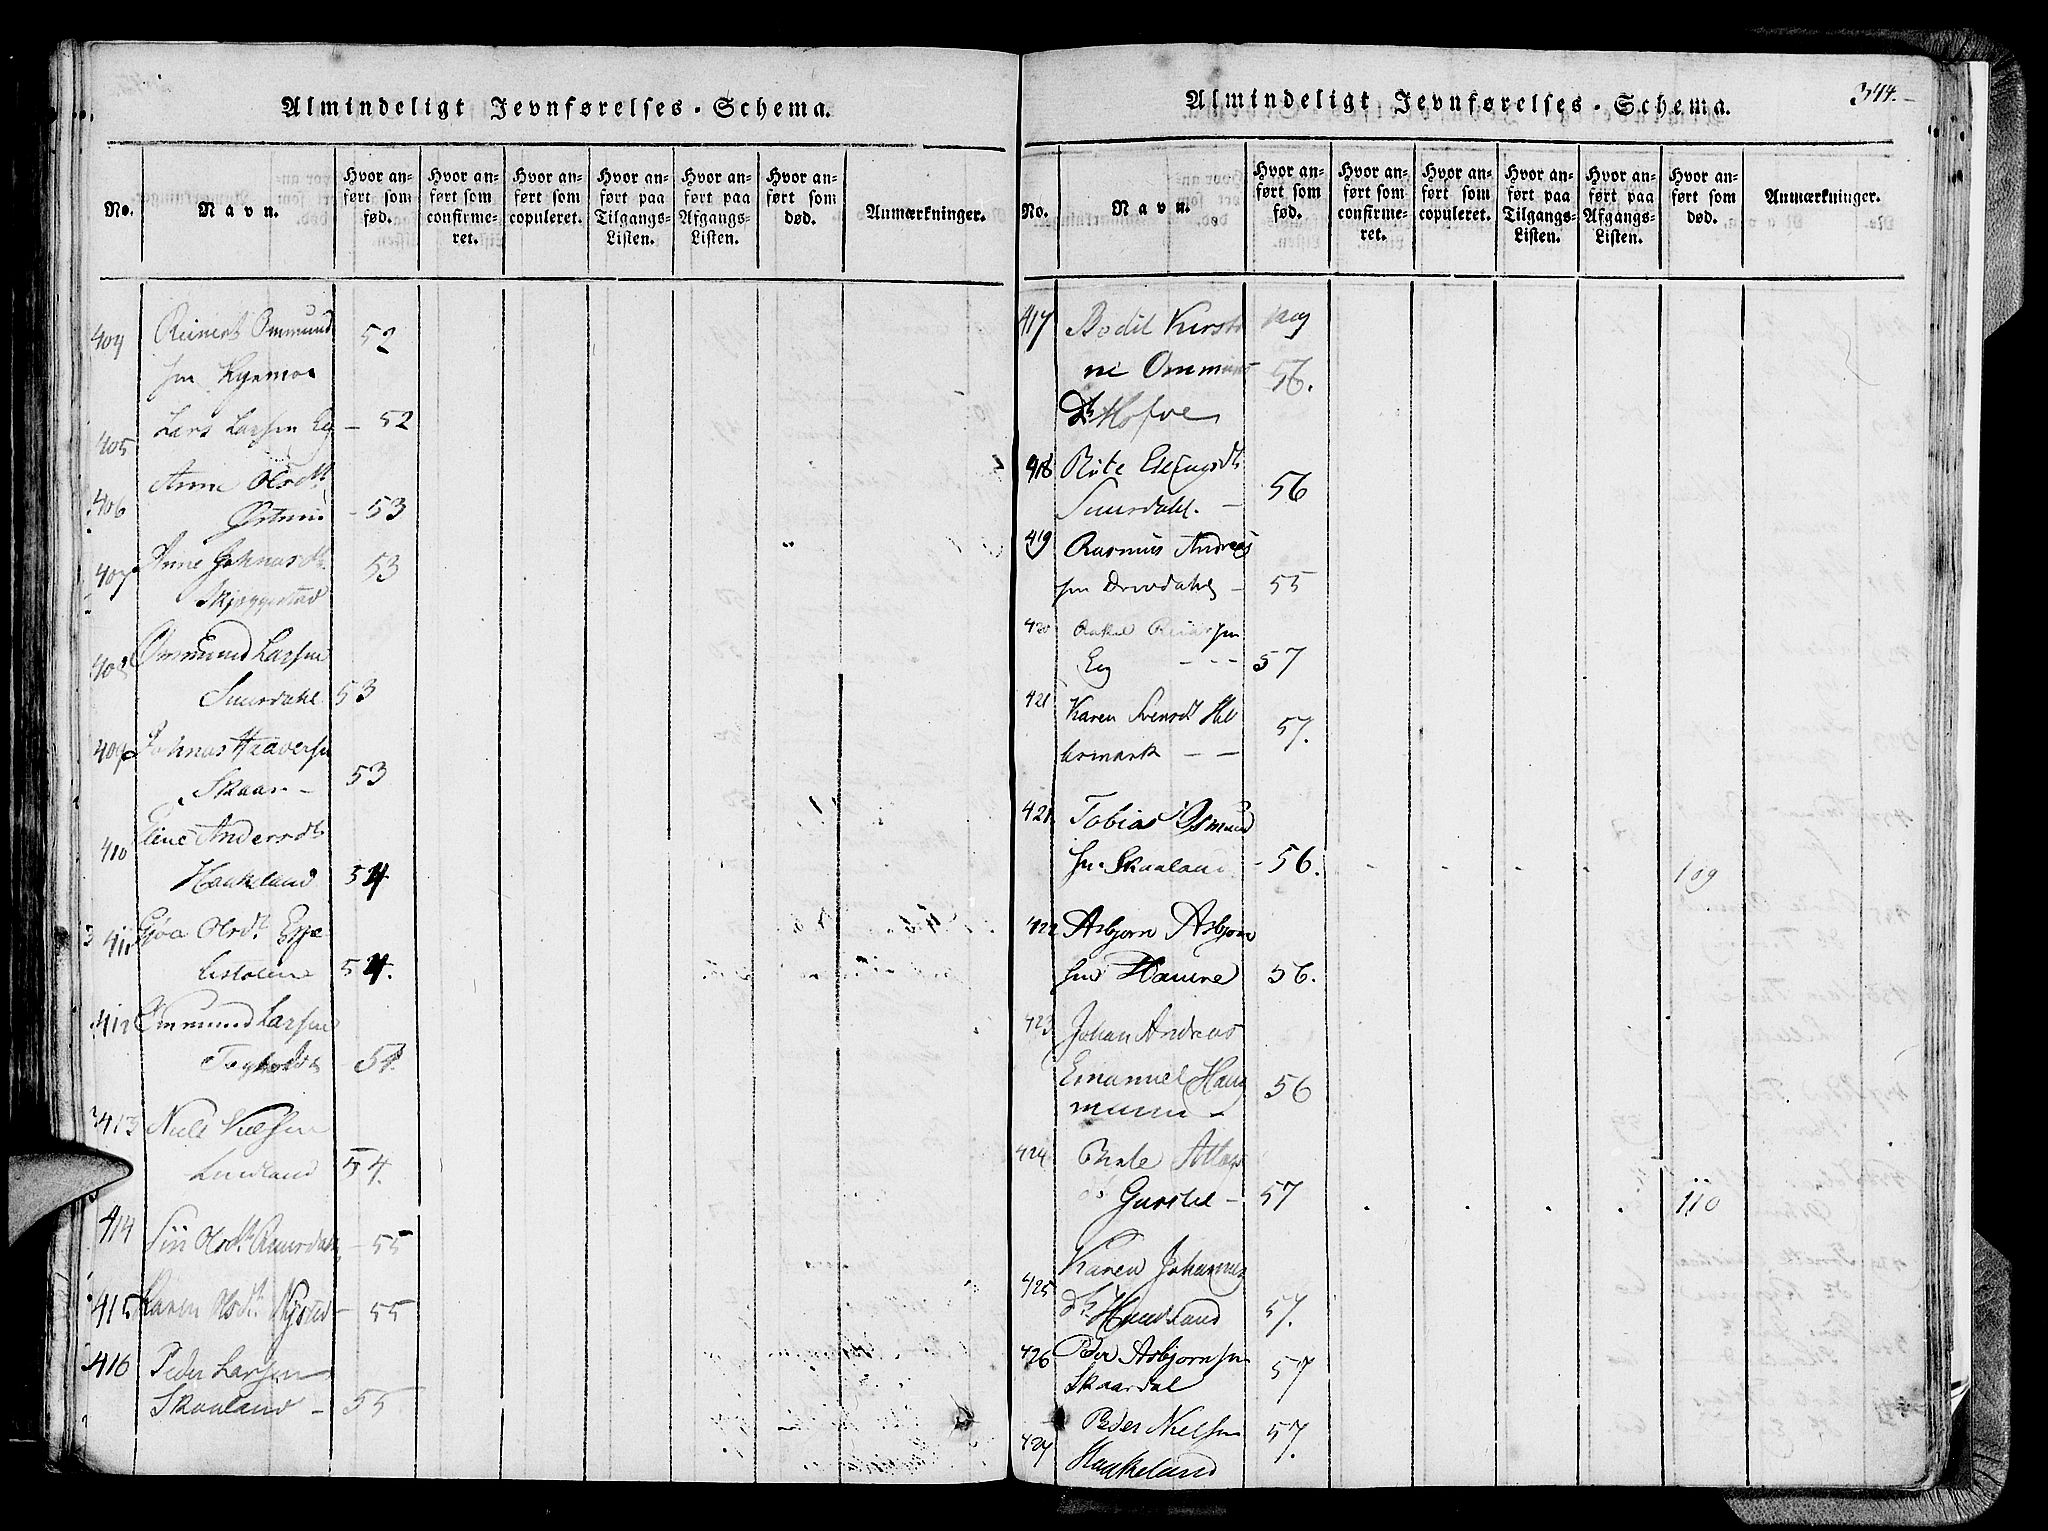 Almindeligt Jevnførelses-Schema.
No.
Navn.
Hvor anført som fød.
Hvor anført som confirmeret.
Hvor anført som copuleret.
Hvor anført paa Tilgangs-Listen.
Hvor anført paa Afgangs-Listen.
Hvor anført som død.
Anmærkninger.
404 Reinert Ommund 52
sen
405 Lars Larsen Eeg — 52
406 Anne Olsdtr
- 53
407 Anne Johnasdtr 53
Skjeggestad
408 Ommund Larsen
Suursdahl 53
409 Johnas Traversen
Skaar - 53
410 Eline Andersdtr
Haakeland 54
411 Gjøa Olsdtr Espe
54.
412 Ommund Larsen
54.
413 Niels Nielsen
Lindland 54.
414 Siri Olsdtr — 55
415 Karen Olsdtr — 55
416 Peder Larsen
Skaaland - 55
Almindeligt Jevnførelses-Schema.
344.
No.
Navn.
Hvor anført som fød.
Hvor anført som confirmeret.
Hvor anført som copuleret.
Hvor anført paa Tilgangs-Listen.
Hvor anført paa Afgangs-Listen.
Hvor anført som død.
Anmærkninger.
417 Bodil Kirsti pag
ne Ommunds 56.
dtr Hofve
418
Suursdahl. — 56
419 Rasmus Andreas
sen Drivdahl - 55
420 Rakel
Eeg - - - 57
421 Karen Svensdtr Hel
lermark — — 57.
421 Tobias Osmund
sen Skaaland - 56. 109
422 Asbjørn Asbjørn
sen 56.
423 Johan Andreas
Emanuel Haug 56
mann -
424 Berte
Gurstel - 57 110
425 Karen Johannes
dtr 57.
426 Peder Asbjørnsen
Skaardal 57
427 Peder Nielsen 57.
Haakeland